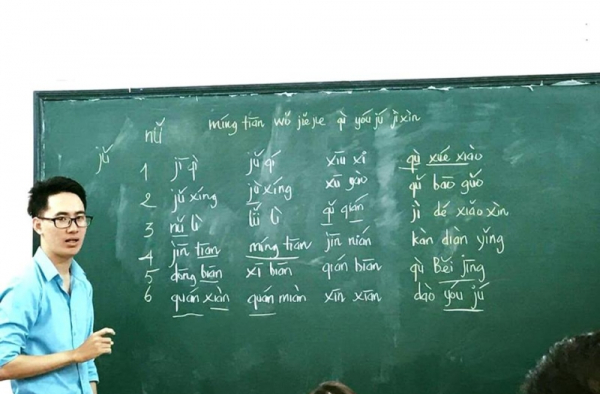 míng tiān wǒ jiějie qù yóu jú jì xìn
nǚ
jǔ
1 jī qì jǔ qí xiū xi qù xué xiào
2 jǔ xíng jǔ xíng xū yào qǔ bāo guǒ
3 nǔ lì lǜ lì qǔ qián jì dé xiǎo xīn
4 jīn tiān míng tiān jīn nián kàn diàn yǐng
5 dōng biān xī biān qián biān qù Běi jīng
6 quán xiàn quán miàn xīn xiān dào yóu jú